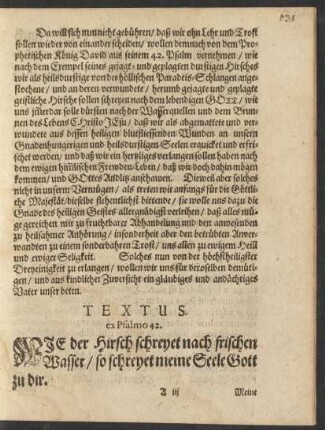 Da will sich nun nicht gebühren/ daß wir ohn Lehr und Trost
sollen wieder von einander scheiden/ wollen demnach von dem Pro-
phetischen König David aus seinem 42. Psalm vernehmen/ wie
nach dem Exempel seines gejagt- und geplagten durstigen Hirsches
wir als heilsdurstige von der höllischen Paradeis-Schlangen ange-
stochene/ und an deren verwundete/ herumb gejagte und geplagte
geistliche Hirsche sollen schreyen nach dem lebendigen GOTT/ wie
uns immerdar solle dürsten nach der Wasserquellen und dem Brun-
nen des Lebens Christo JEsu/ daß wir als abgemattete und ver-
wundete aus dessen heiligen blutfliessenden Wunden an unsern
Gnadenhungerigen und heilsdurstigen Seelen erquicket und erfri-
schet werden/ und daß wir ein hertzliges verlangen sollen haben nach
dem ewigen himlischen Frewden-Leben/ daß wir doch dahin mögen
kommen/ und GOttes Andlitz anschawen. Dieweil aber solches
nicht in unserm Vermügen/ als treten wir anfangs für die Göttli-
che Majestät/ dieselbe flehentlichst bittende/ sie wolle uns dazu die
Gnade des heiligen Geistes allergnädigst verleihen/ daß alles mü-
ge gereichen mir zu fruchtbarer Abhandelung und den anwesenden
zu heilsahmer Anhörung/ insonderheit aber den betrübten Anver-
wandten zu einem sonderbahren Trost/ uns allen zu ewigem Heil
und ewiger Seligkeit. Solches nun von der höchstheiligster
Dreyeinigkeit zu erlangen/ wollen wir uns für deroselben demüti-
gen/ und aus kindlicher Zuversicht ein gläubiges und andächtiges
Vater unser beten.
TEXTUS.
ex Psalmo 42.
WIE der Hirsch schreyet nach frischen
Wasser/ so schreyet meine Seele Gott
zu dir.
A iij Meine